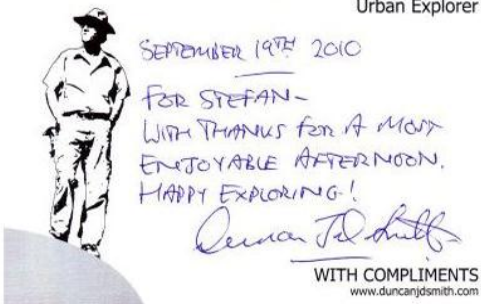 Urban Explorer
SEPTEMBER 19TH 2010
FOR STEFAN-
WITH THANKS FOR A MOST
ENJOYABLE AFTERNOON.
HAPPY EXPLORING!
Duncan JD Smith
WITH COMPLIMENTS
www.duncanjdsmith.com